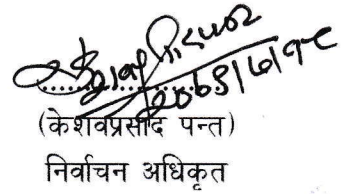 २०६९।७।१८
(केशवप्रसाद पन्त)
निर्वाचन अधिकृत